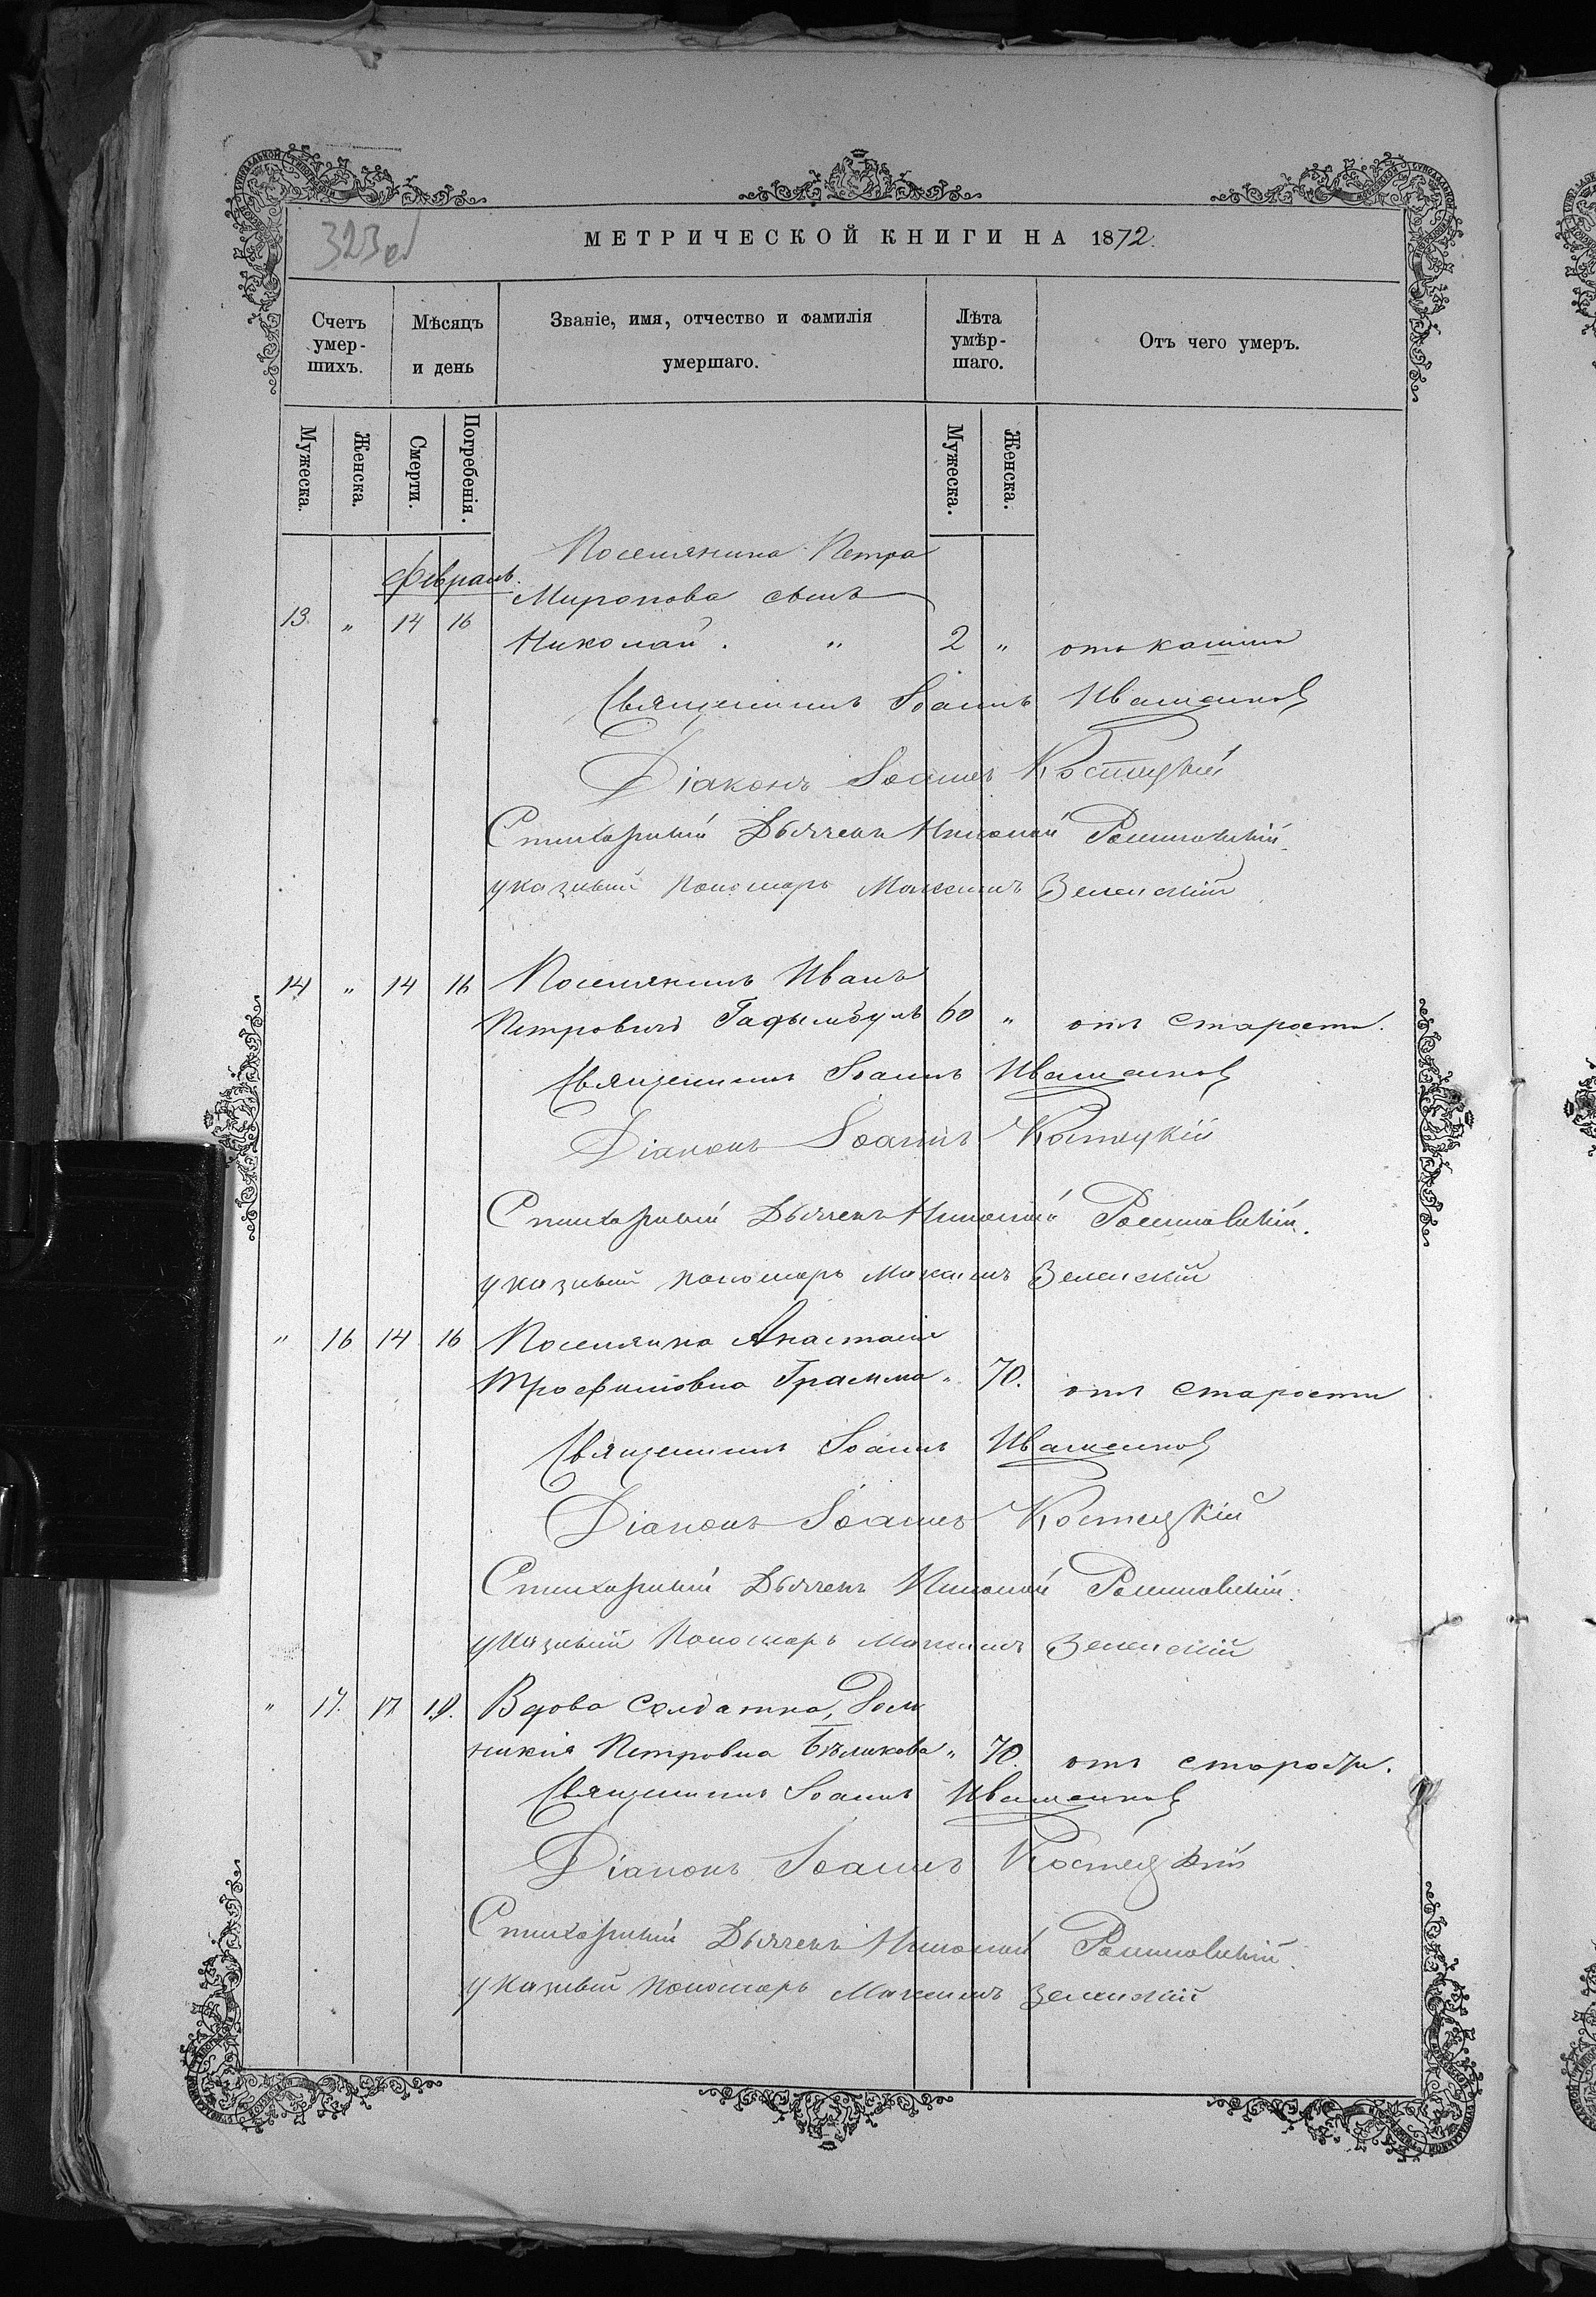 МЕТРИЧЕСКОЙ КНИГИ НА 1872.
323
Счетъ умер-шихъ.
Мѣсяцъ и день
Званіе, имя, отчество и фамилія умершаго.
Лѣта умѣр-шаго.
Отъ чего умеръ.
Мужеска. Женска. Смерти. Погребенія. Мужеска. Женска.
Февраль.
Поселянина Петра
Миронова сынъ
13. " 14 16 Николай. " 2 " отъ кашля
Священникъ Іоаннъ Иващенко
Діаконъ Іоаннъ Костецкій
Стихарный Дьячекъ Николай
указный пономарь Максимъ Зеленскій
14 " 14 16 Поселянинъ Иванъ
Петровичъ 60 " отъ старости.
Священникъ Іоаннъ Иващенко
Діаконъ Іоаннъ Костецкій
Стихарный Дьячекъ Николай
указный пономарь Максимъ Зеленскій
" 16 14 16 Поселянка Анастасія
Трофимовна Грамма " 70. отъ старости
Священникъ Іоаннъ Иващенко
Діаконъ Іоаннъ Костецкій
Стихарный Дьячекъ Николай
указный Пономарь Максимъ Зеленскій
" 17. 17 19. Вдова солдатка, Дом
никія Петровна Бѣликова " 70. отъ старости.
Священникъ Іоаннъ Иващенко
Діаконъ Іоаннъ Костецкій
Стихарный Дьячекъ Николай
указный пономарь Максимъ Зеленскій